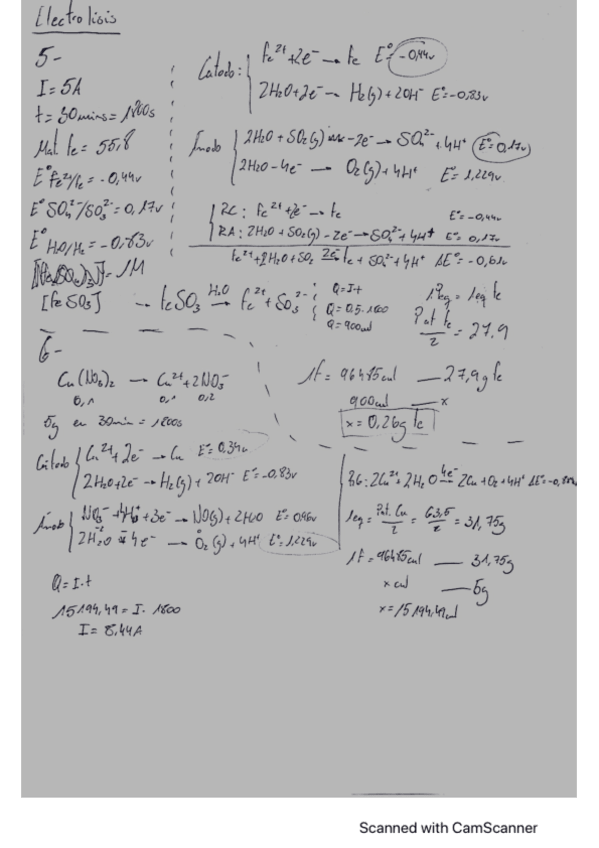 Electrolisis
5-
I = 5A
t = 30 mins = 1800s
Mat Fe = 55,8
E° Fe²⁺/Fe = -0,44v
E° SO₄²⁻/SO₃²⁻ = 0,17v
E° H₂O/H₂ = -0,83v
= 1M
[FeSO₃]
Cátodo:
Fe²⁺ + 2e⁻ → Fe E° = -0,44v
2H₂O + 2e⁻ → H₂(g) + 2OH⁻ E° = -0,83v
Ánodo
2H₂O + SO₂(g) - 2e⁻ → SO₄²⁻ + 4H⁺ E° = 0,17v
2H₂O - 4e⁻ → O₂(g) + 4H⁺ E° = 1,229v
RC: Fe²⁺ + 2e⁻ → Fe E° = -0,44v
RA: 2H₂O + SO₂(g) - 2e⁻ → SO₄²⁻ + 4H⁺ E° = 0,17v
Fe²⁺ + 2H₂O + SO₂ 2e⁻→ Fe + SO₄²⁻ + 4H⁺ ΔE° = -0,61v
→ FeSO₃ H₂O→ Fe²⁺ + SO₃²⁻
Q = I·t
Q = 0,5·1800
Q = 900cul
1Peq = 1eq Fe
Pat Fe/2 = 27,9
1F = 96485cul — 27,9g Fe
900cul — x
x = 0,26g Fe
6-
Cu(NO₃)₂ → Cu²⁺ + 2NO₃⁻
0,1 0,1 0,2
5g en 30min = 1800s
Cátodo
Cu²⁺ + 2e⁻ → Cu E° = 0,34v
2H₂O + 2e⁻ → H₂(g) + 2OH⁻ E° = -0,83v
Ánodo
NO₃⁻ + 4H⁺ + 3e⁻ → NO(g) + 2H₂O E° = 0,96v
2H₂O - 4e⁻ → O₂(g) + 4H⁺ E° = 1,229v
RG: 2Cu²⁺ + 2H₂O 4e⁻→ 2Cu + O₂ + 4H⁺
1eq = Pat. Cu/2 = 63,5/2 = 31,75g
1F = 96485cul — 31,75g
x cul — 5g
x = 15194,49cul
Q = I·t
15194,49 = I · 1800
I = 8,44A
Scanned with CamScanner